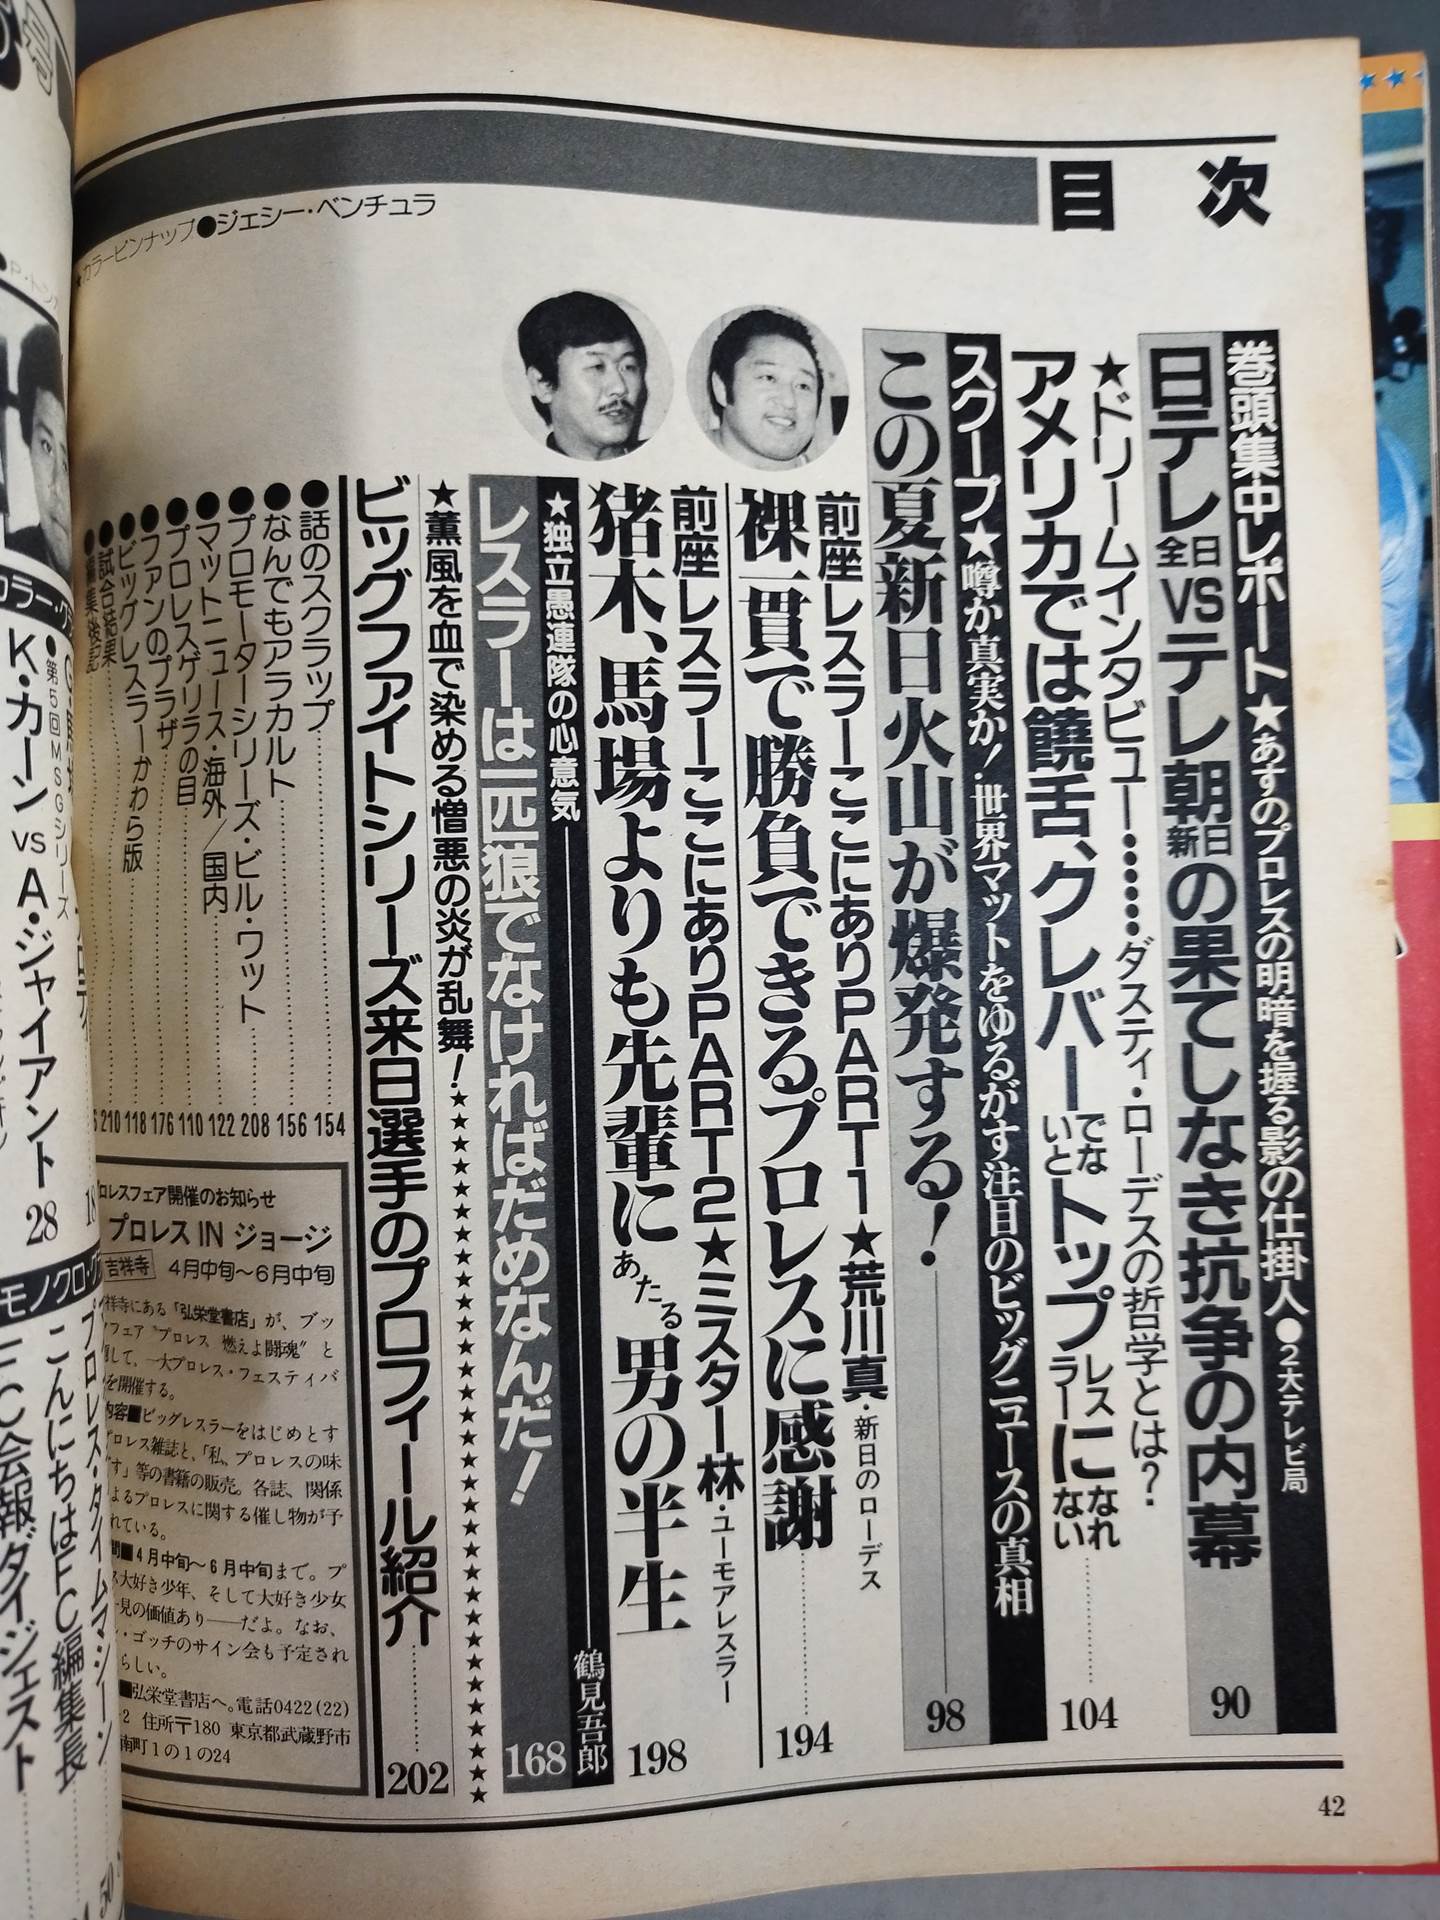 目次
巻頭集中レポート★あすのプロレスの明暗を握る影の仕掛人●2大テレビ局
日テレ全日VSテレ朝新日の果てしなき抗争の内幕
90
★ドリームインタビュー……ダスティ・ローデスの哲学とは?
アメリカでは饒舌、クレバーでないとトップレスラーになれない
104
スクープ★噂か真実か!・世界マットをゆるがす注目のビッグニュースの真相
この夏新日火山が爆発する!
98
前座レスラーここにありPART1★荒川真・新日のローデス
裸一貫で勝負できるプロレスに感謝
194
前座レスラーここにありPART2★ミスター林・ユーモアレスラー
猪木、馬場よりも先輩にあたる男の半生
198
★独立愚連隊の心意気
鶴見吾郎
レスラーは一匹狼でなければだめなんだ!
168
★薫風を血で染める憎悪の炎が乱舞!★★★★★★★★★★★★★★★★★★★★★★
ビッグファイトシリーズ来日選手のプロフィール紹介
202
★カラーピンナップ●ジェシー・ベンチュラ
●話のスクラップ 154
●なんでもアラカルト 156
●プロモーターシリーズ・ビル・ワット 208
●マットニュース・海外/国内 122
●プロレスゲリラの目 110
●ファンのプラザ 176
●ビッグレスラーかわら版 118
●試合結果 210
●編集後記
ロレスフェア開催のお知らせ
プロレス IN ジョージ
吉祥寺 4月中旬〜6月中旬
祥寺にある「弘栄堂書店」が、ブッ
フェア〝プロレス 燃えよ闘魂〟と
して、一大プロレス・フェスティバ
を開催する。
内容■ビッグレスラーをはじめとす
プロレス雑誌と、「私、プロレスの味
す」等の書籍の販売。各誌、関係
よるプロレスに関する催し物が予
れている。
間■4月中旬〜6月中旬まで。プ
ス大好き少年、そして大好き少女
一見の価値あり――だよ。なお、
・ゴッチのサイン会も予定され
らしい。
■弘栄堂書店へ。電話0422(22)
2 住所〒180 東京都武蔵野市
南町1の1の24
42
号
カラー・グ
●第5回MSGシリーズ
K・カーン VS A・ジャイアント 28
18
モノクロ・グ
プロレス・タイムマシーン
こんにちはFC編集長
FC会報ダイジェスト
50